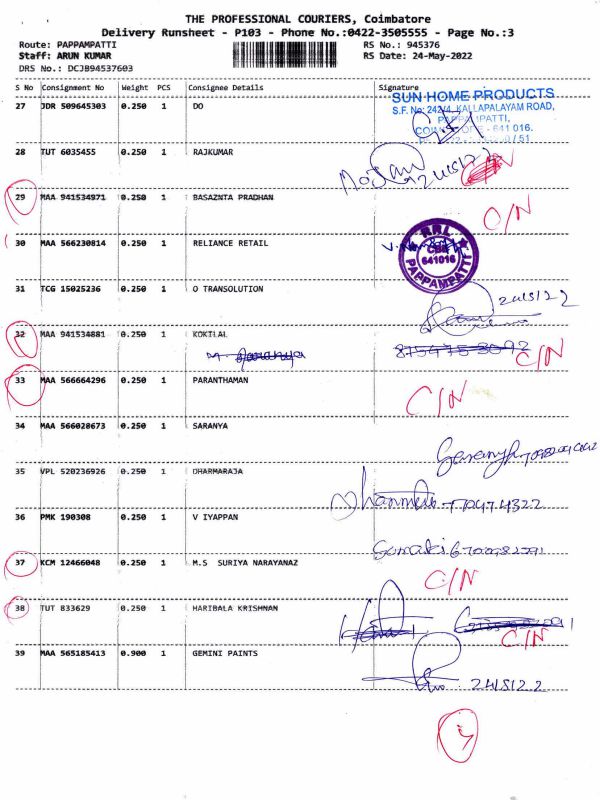 THE PROFESSIONAL COURIERS, Coimbatore
Delivery Runsheet - P103 - Phone No.:0422-3505555 - Page No.:3
Route: PAPPAMPATTI RS No.: 945376
Staff: ARUN KUMAR RS Date: 24-May-2022
DRS No.: DCJB94537603
S No Consignment No Weight PCS Consignee Details Signature
SUN HOME PRODUCTS
27 JDR 509645303 0.250 1 DO
S.F. No: 242/4, KALLAPALAYAM ROAD,
PAPPAMPATTI,
641 016.
28 TUT 6035455 0.250 1 RAJKUMAR
24/5/22
29 MAA 941534971 0.250 1 BASAZNTA PRADHAN
C/N
30 MAA 566230814 0.250 1 RELIANCE RETAIL
RRL
CBE
641016
PAPPAMPATTI
31 TCG 15025236 0.250 1 O TRANSOLUTION
24/5/22
32 MAA 941534881 0.250 1 KOKILAL
C/N
33 MAA 566664296 0.250 1 PARANTHAMAN
C/N
34 MAA 566028673 0.250 1 SARANYA
35 VPL 520236926 0.250 1 DHARMARAJA
36 PMK 190308 0.250 1 V IYAPPAN
37 KCM 12466048 0.250 1 M.S SURIYA NARAYANAZ
C/N
38 TUT 833629 0.250 1 HARIBALA KRISHNAN
C/N
39 MAA 565185413 0.900 1 GEMINI PAINTS
24/5/22